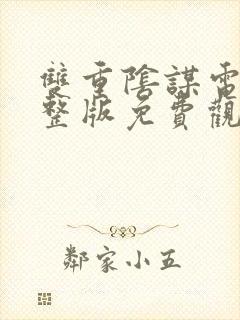 雙重陰謀電
整版免費觀
鄰家小五